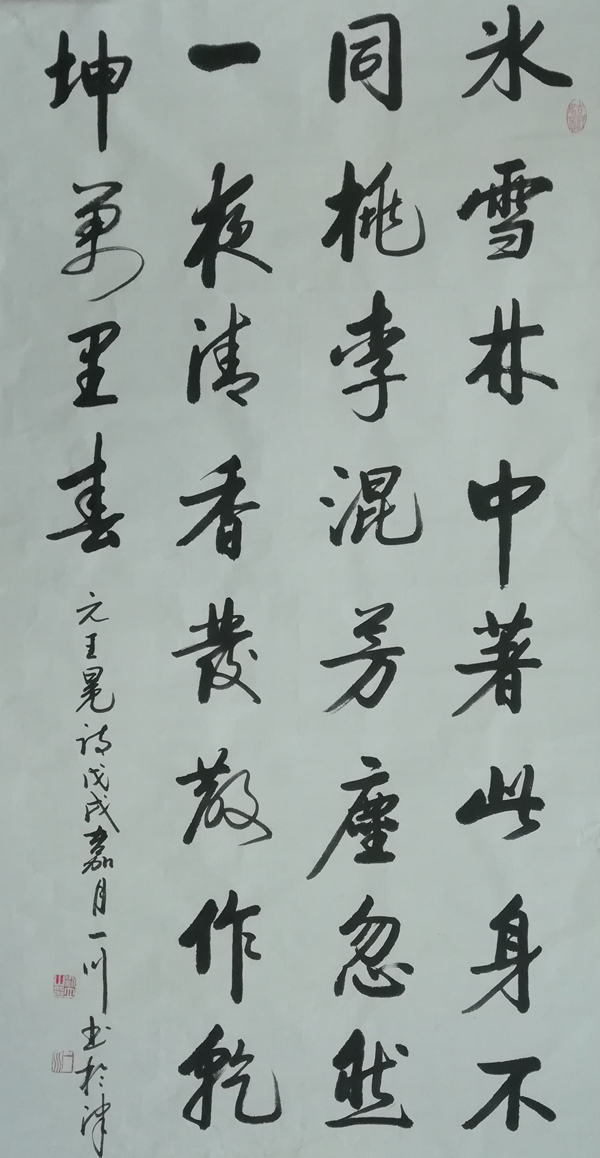 冰雪林中著此身不
同桃李混芳塵忽然
一夜清香發散作乾
坤萬里春
元王冕诗戊戌嘉月一川书於津